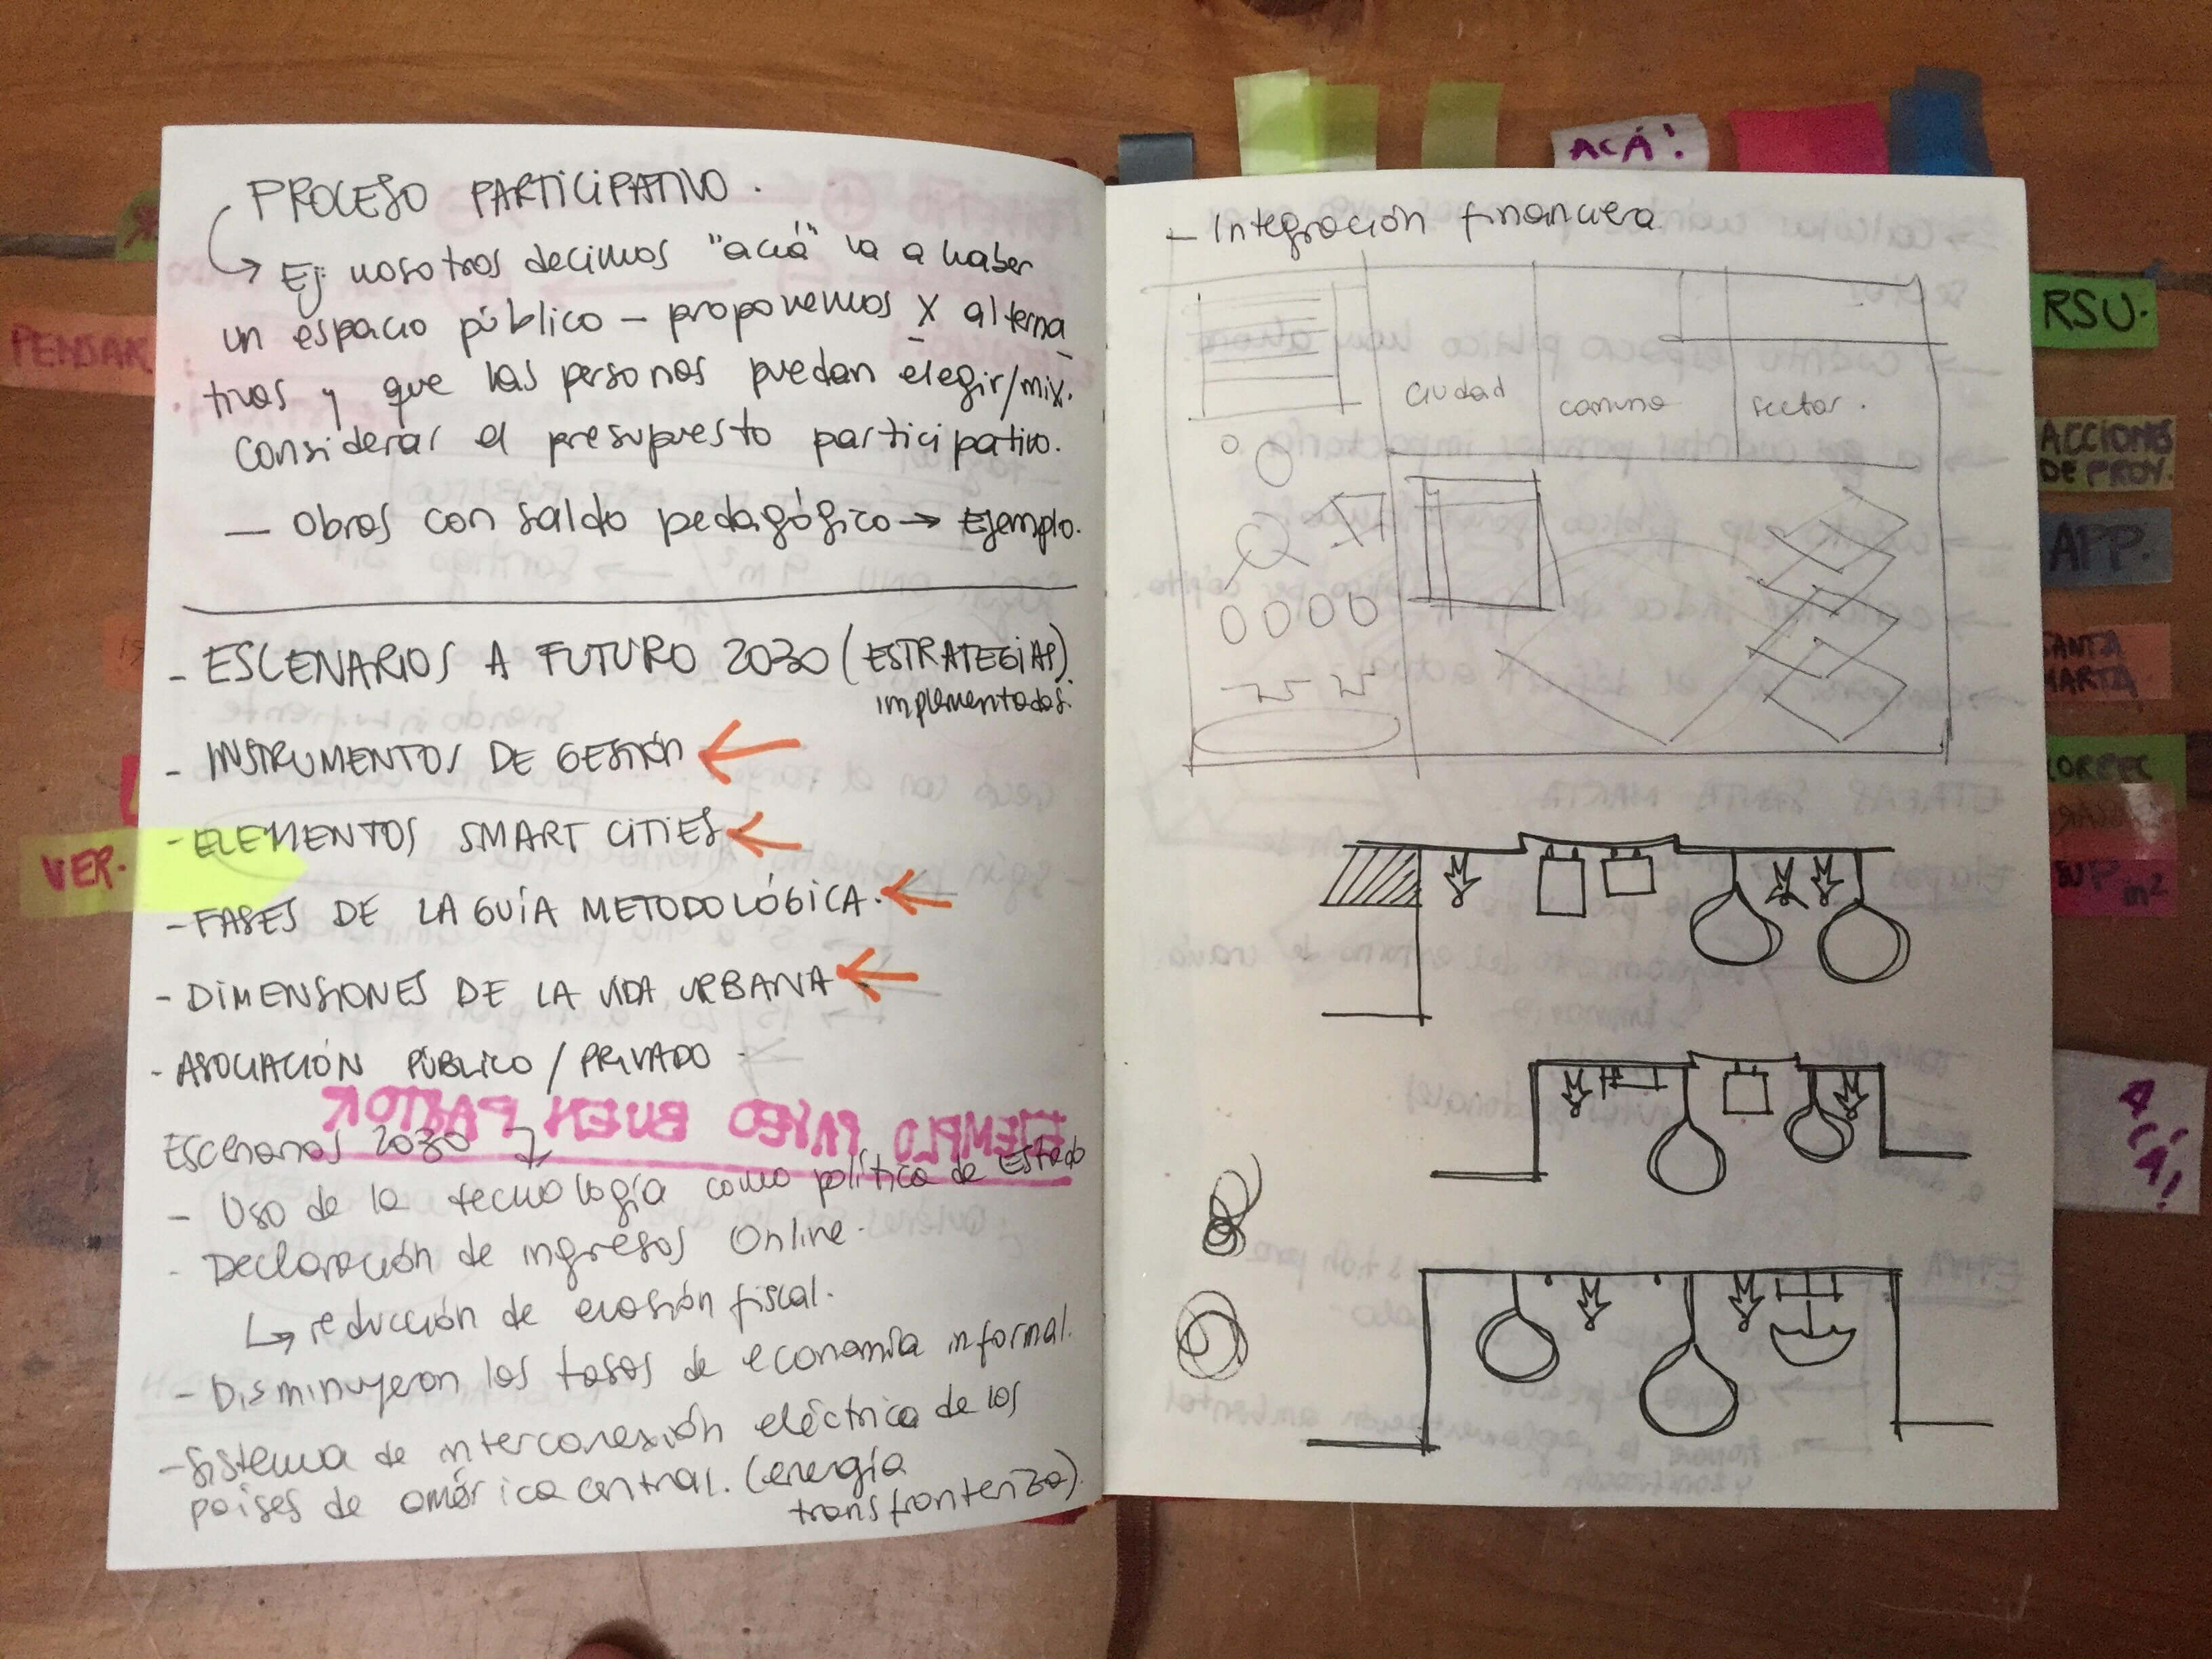 PROCESO PARTICIPATIVO.
→ Ej: nosotros decimos "acá" va a haber
un espacio público – proponemos X alterna
tivas y que las personas puedan elegir/mix.
considerar el presupuesto participativo.
— Obras con saldo pedagógico → Ejemplo.
- ESCENARIOS A FUTURO 2030 (ESTRATEGIAS)
implementadas.
- INSTRUMENTOS DE GESTIÓN
- ELEMENTOS SMART CITIES
- FASES DE LA GUÍA METODOLÓGICA.
- DIMENSIONES DE LA VIDA URBANA
- ASOCIACIÓN PÚBLICO / PRIVADO
EJEMPLO PASEO BUEN PASTOR
Escenarios 2030
- Uso de la tecnología como política de Estado
- Declaración de ingresos Online.
↳ reducción de erosión fiscal.
- Disminuyeron las tasas de economía informal.
- Sistema de interconexión eléctrica de los
países de américa central. (energía
transfronteriza)
- Integración financiera
ciudad
comuna
sector.
PENSAR
VER.
ACÁ!
RSU.
ACCIONES
DE PROY.
APP.
SANTA
MARTA
m2
ACÁ!